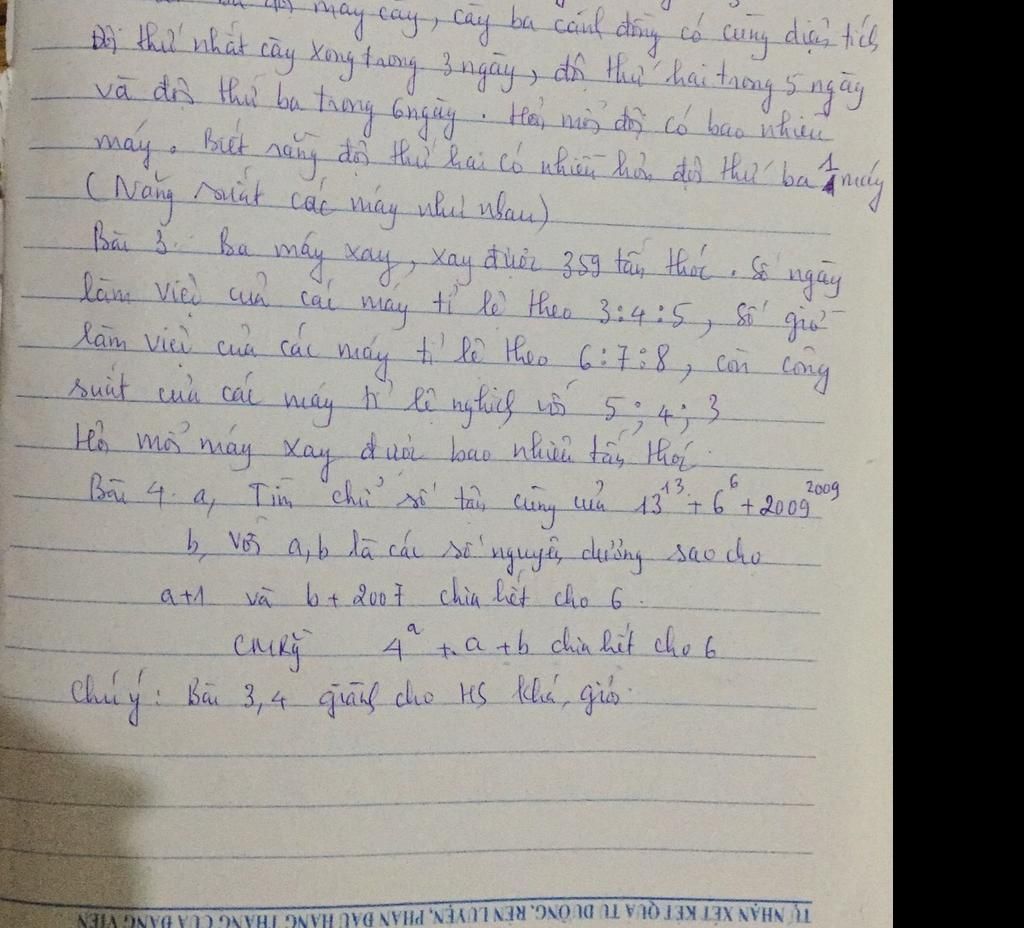 ba đội máy cày, cày ba cánh đồng có cùng diện tích
Đội thứ nhất cày xong trong 3 ngày, đội thứ hai trong 5 ngày
và đội thứ ba trong 6 ngày. Hỏi mỗi đội có bao nhiêu
máy. Biết rằng đội thứ hai có nhiều hơn đội thứ ba 1 máy
(Năng suất các máy như nhau)
Bài 3. Ba máy xay, xay được 359 tấn thóc. Số ngày
làm việc của các máy tỉ lệ theo 3:4:5, số giờ
làm việc của các máy tỉ lệ theo 6:7:8, còn công
suất của các máy tỉ lệ nghịch với 5; 4; 3
Hỏi mỗi máy xay được bao nhiêu tấn thóc.
Bài 4. a, Tìm chữ số tận cùng của 13¹³ + 6⁶ + 2009²⁰⁰⁹
b, Với a, b là các số nguyên dương sao cho
a+1 và b + 2007 chia hết cho 6.
CMRằ 4ᵃ + a + b chia hết cho 6
Chú ý: Bài 3, 4 giành cho HS khá, giỏi.
TỰ NHẬN XÉT KẾT QUẢ TU DƯỠNG, RÈN LUYỆN, PHẤN ĐẤU HÀNG THÁNG CỦA ĐẢNG VIÊN